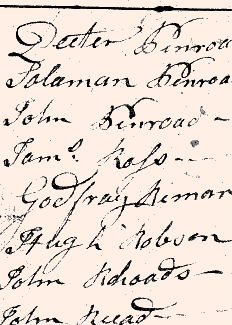 Peeter Penroa
Solaman Penroa
John Penroad -
Jams. Ross - -
Godfray Remar
Hugh Robson
John Rhoads -
John Read -